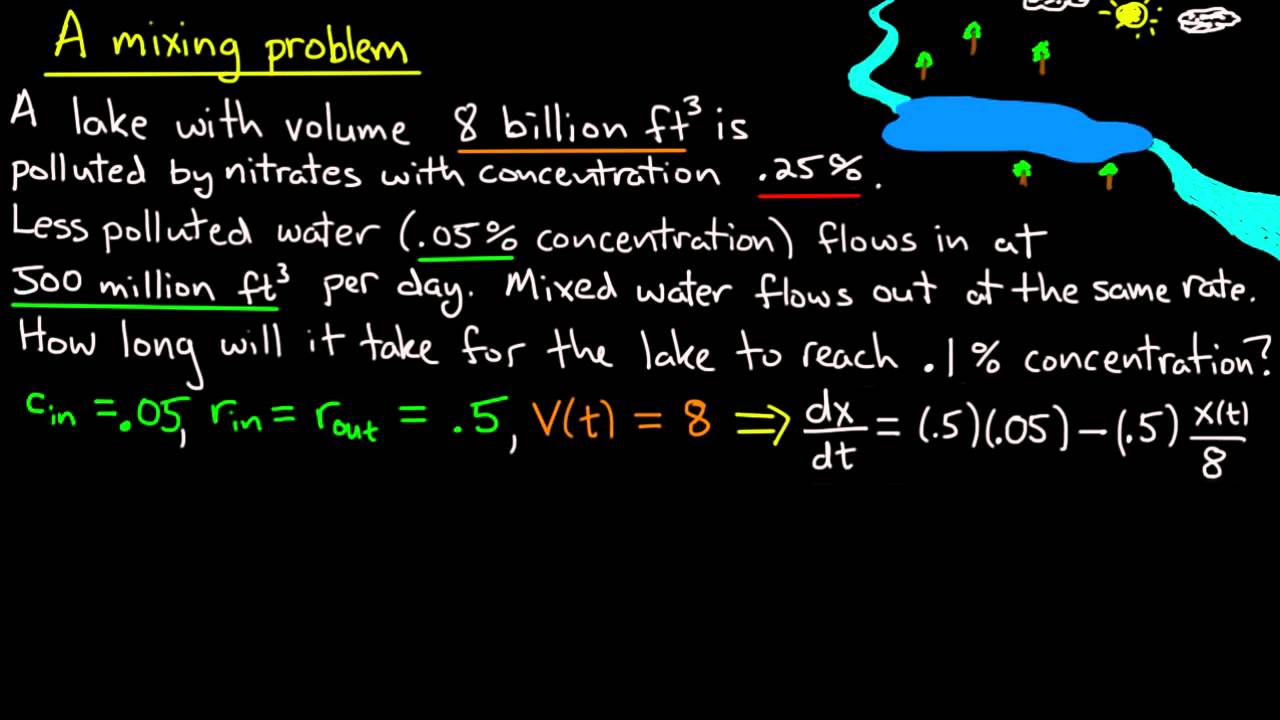 A mixing problem
A lake with volume 8 billion ft³ is
polluted by nitrates with concentration .25%.
Less polluted water (.05% concentration) flows in at
500 million ft³ per day. Mixed water flows out at the same rate.
How long will it take for the lake to reach .1% concentration?
c_in = .05, r_in = r_out = .5, V(t) = 8 ⇒ dx/dt = (.5)(.05) - (.5) x(t)/8